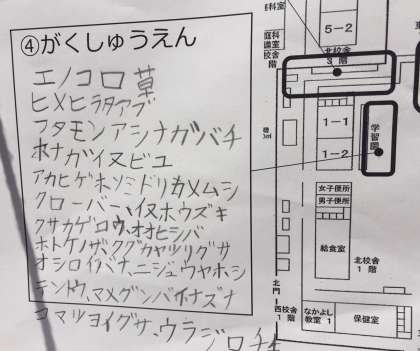 ④がくしゅうえん
エノコロ草
ヒメヒラタアブ
フタモンアシナガバチ
ホナガイヌビユ
アカヒゲホソミドリカメムシ
クローバー、イヌホウズキ
クサカゲロウ、オオヒシバ
ホトケノザ、ククガヤツリグサ
オシロイバナ、ニジュウヤホシ
テンドウ、マメグンバイナズナ
コマツヨイグサ、ウラジロチチ
5-2
北校舎
3階
1-1
1-2
学習園
女子便所
男子便所
給食室
北校舎
1階
北門
西校舎
1階
なかよし
教室1
保健室